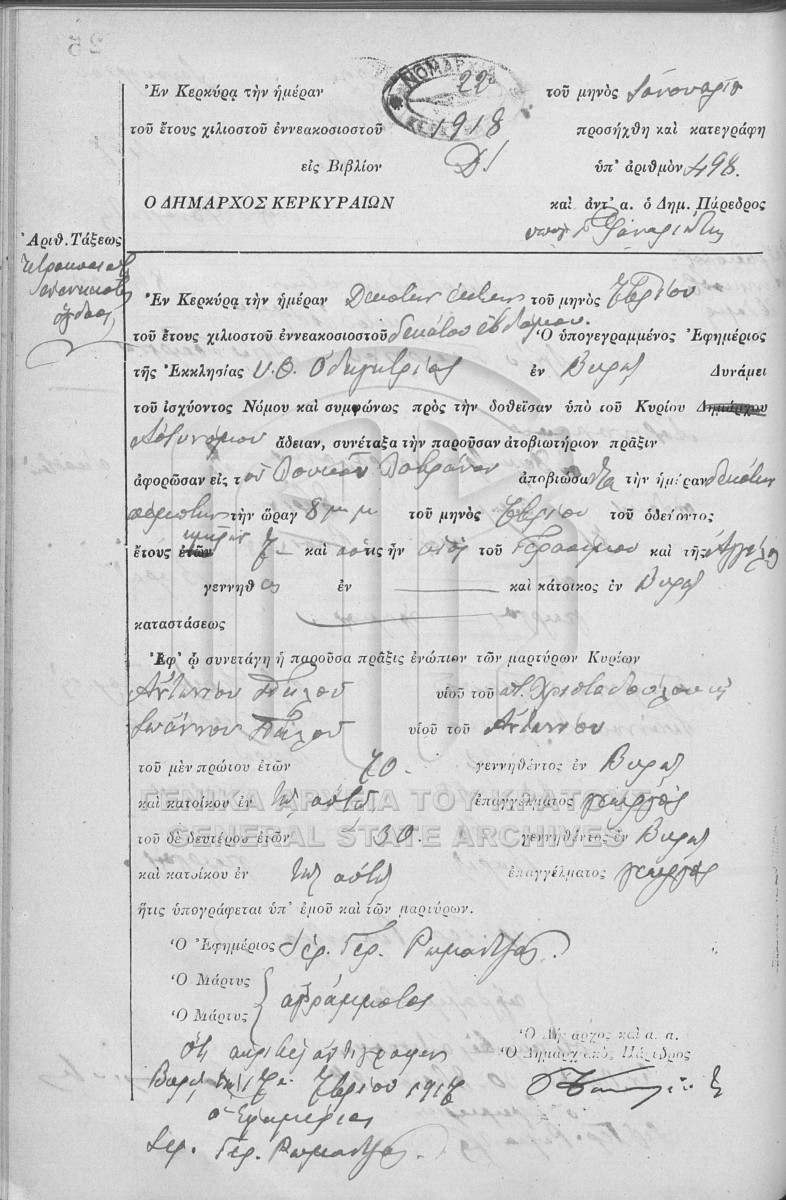 Ἐν Κερκύρᾳ τὴν ἡμέραν 22 τοῦ μηνὸς Ἰανουαρίου
τοῦ ἔτους χιλιοστοῦ ἐννεακοσιοστοῦ 1918 προσήχθη καὶ κατεγράφη
εἰς Βιβλίον Δ΄ ὑπ' ἀριθμὸν 498.
Ο ΔΗΜΑΡΧΟΣ ΚΕΡΚΥΡΑΙΩΝ καὶ ἀντ' α. ὁ Δημ. Πάρεδρος
ΝΟΜΑΡΧΙΑ
Ἀριθ. Τάξεως
ὄγδοος
Ἐν Κερκύρᾳ τὴν ἡμέραν Δεκάτην ἕκτην τοῦ μηνὸς 7βρίου
τοῦ ἔτους χιλιοστοῦ ἐννεακοσιοστοῦ δεκάτου ἑβδόμου. Ὁ ὑπογεγραμμένος Ἐφημέριος
τῆς Ἐκκλησίας Υ.Θ. Ὁδηγητρίας ἐν Δυνάμει
τοῦ ἰσχύοντος Νόμου καὶ συμφώνως πρὸς τὴν δοθεῖσαν ὑπὸ τοῦ Κυρίου Δημάρχου
Ἀστυνόμου ἄδειαν, συνέταξα τὴν παροῦσαν ἀποβιωτήριον πρᾶξιν
ἀφορῶσαν εἰς τὸν ἀποβιώσαντα τὴν ἡμέραν δεκάτην
πέμπτην τὴν ὥραν 8 μ μ τοῦ μηνὸς 7βρίου τοῦ ὁδεύοντος
ἔτους ἐτῶν καὶ ὅστις ἦν υἱὸς τοῦ Γερασίμου καὶ τῆς Ἀγγέλας
γεννηθεὶς ἐν καὶ κάτοικος ἐν
καταστάσεως
Ἐφ' ᾧ συνετάγη ἡ παροῦσα πρᾶξις ἐνώπιον τῶν μαρτύρων Κυρίων
Ἀντωνίου υἱοῦ τοῦ π. Χριστοδούλου καὶ
Ἰωάννου υἱοῦ τοῦ Ἀντωνίου
τοῦ μὲν πρώτου ἐτῶν 70. γεννηθέντος ἐν
καὶ κατοίκου ἐν τῇ αὐτῇ ἐπαγγέλματος γεωργός
ΓΕΝΙΚΑ ΑΡΧΕΙΑ ΤΟΥ ΚΡΑΤΟΥΣ
GENERAL STATE ARCHIVES
τοῦ δὲ δευτέρου ἐτῶν 30. γεννηθέντος ἐν
καὶ κατοίκου ἐν τῇ αὐτῇ ἐπαγγέλματος γεωργός
ἥτις ὑπογράφεται ὑπ' ἐμοῦ καὶ τῶν μαρτύρων.
Ὁ Ἐφημέριος Ἱερ. Γερ. Ρωμαντζᾶς.
Ὁ Μάρτυς
ἀγράμματος
Ὁ Μάρτυς
Ὁ Δήμαρχος καὶ α. α.
Ὁ Δημαρχιακὸς Πάρεδρος
Ὅτι ἀκριβὲς ἀντίγραφον
7βρίου 1917
ὁ Ἐφημέριος
Ἱερ. Γερ. Ρωμαντζᾶς.